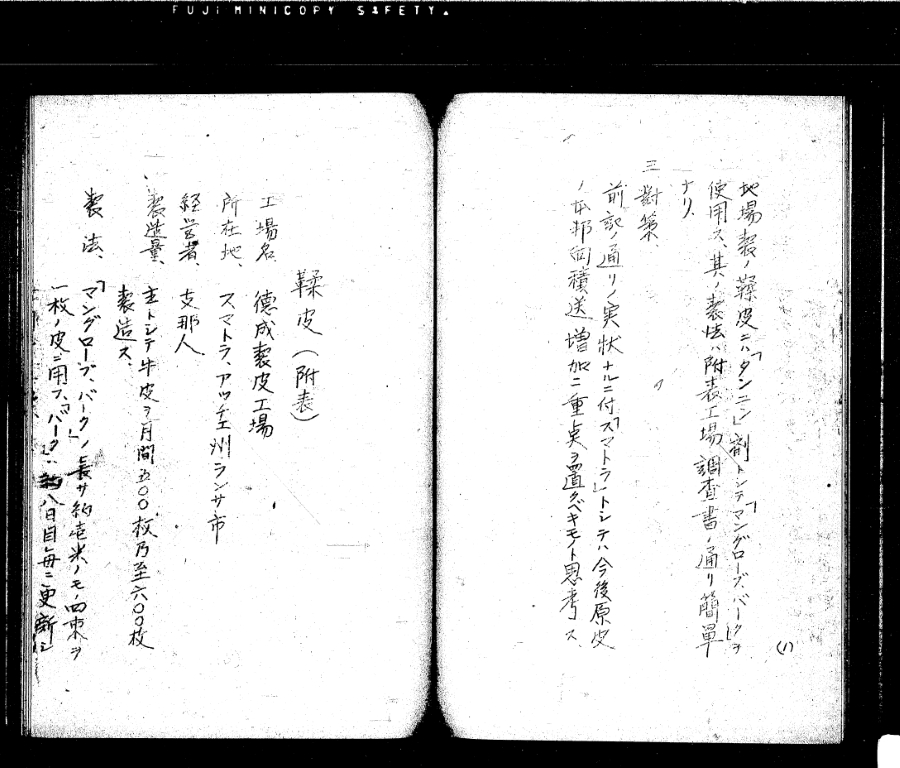 FUJI MINICOPY SAFETY.
(1)
地場製ノ鞣皮ニハ「タンニン」剤トシテ「マングローブ、バーク」ヲ
使用ス、其ノ製法ハ附表工場調査書ノ通リ簡單
ナリ
三 對策
前記ノ通リノ実状ナルニ付「スマトラ」トシテハ今後原皮
ノ本邦向積送増加ニ重点ヲ置クベキモノト思考ス
鞣皮(附表)
工場名 德成製皮工場
所在地、 スマトラ、アッチェ州ランサ市
経営者、 支那人
製造量、 主トシテ牛皮ヲ月間五〇〇枚乃至六〇〇枚
製造ス、
製法、 「マングローブ、バーク」ノ長サ約壱米ノモノ四束ヲ
一枚ノ皮ニ用フ、「バーク」ハ約八日目毎ニ更新シ